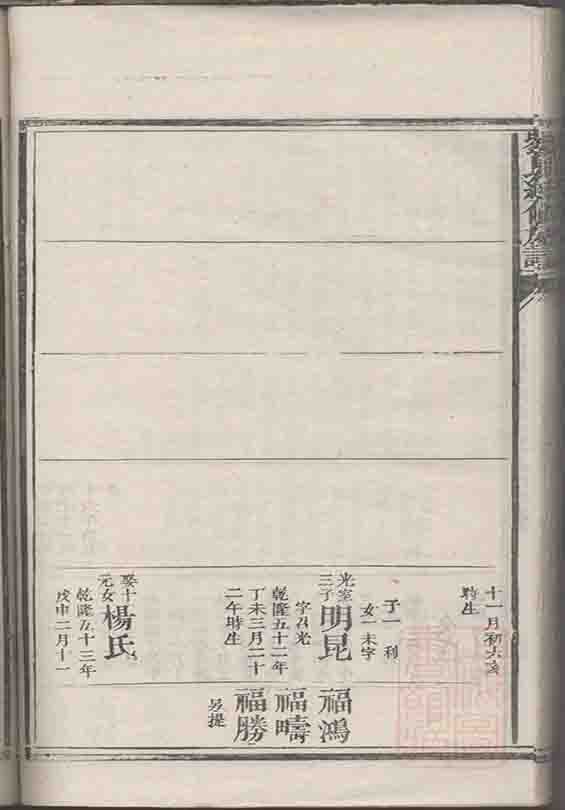 十一月初六亥
時生
子一 利
女一未字
光室三子
明昆
字召光
乾隆五十二年
丁未三月二十
二午時生
娶十元女
楊氏
乾隆五十三年
戊申二月十一
福鴻
福疇
福勝
另提